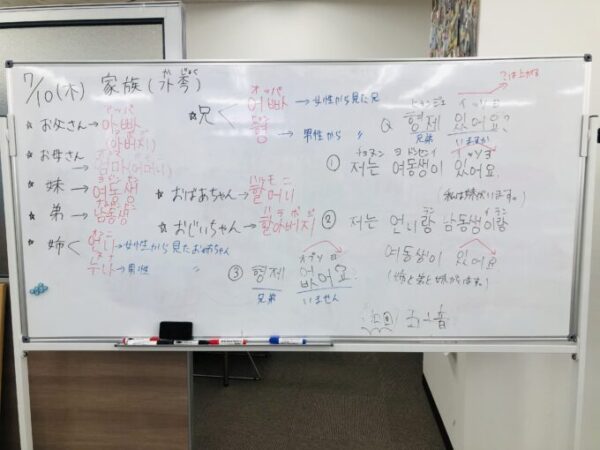 7/10(木) 家族(가족)
か じょく
アッパ
☆ お父さん→아빠
(아버지)
☆ お母さん→엄마(어머니)
☆ 妹→여동생
☆ 弟→남동생
☆ 姉< 언니→女性から見たお姉ちゃん
누나→男性 〃
オッパ
☆兄< 오빠→女性から見た兄
형→男性から 〃
ハルモニ
☆おばあちゃん→할머니
☆おじいちゃん→할아버지
③ 형제 없어요
兄弟 いません
ごは上がる
ヒョンジェ イッソヨ
Q 형제 있어요?
兄弟 いますか
① 저는 여동생이 있어요.
(私は妹がいます。)
② 저는 언니랑 남동생이랑
여동생이 있어요